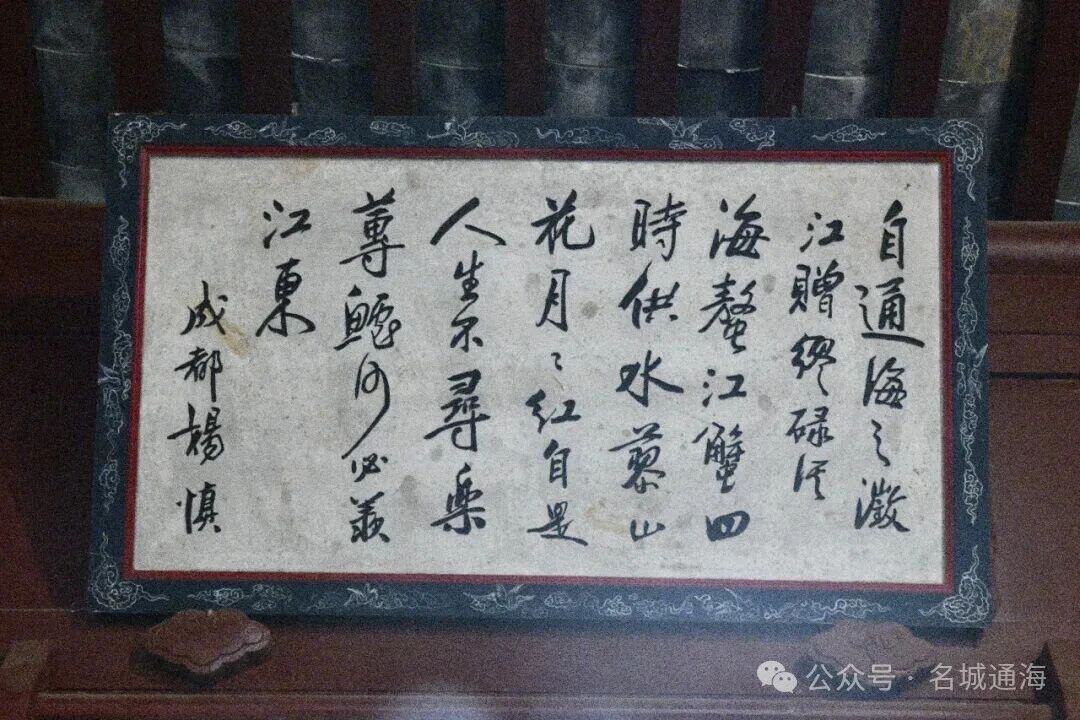 自通海之澂
江贈繆碌溪
海螯江蟹四
時供水蓼山
花月〻紅自是
人生不尋樂
蓴鱸何必羨
江東
成都楊慎
公众号·名城通海